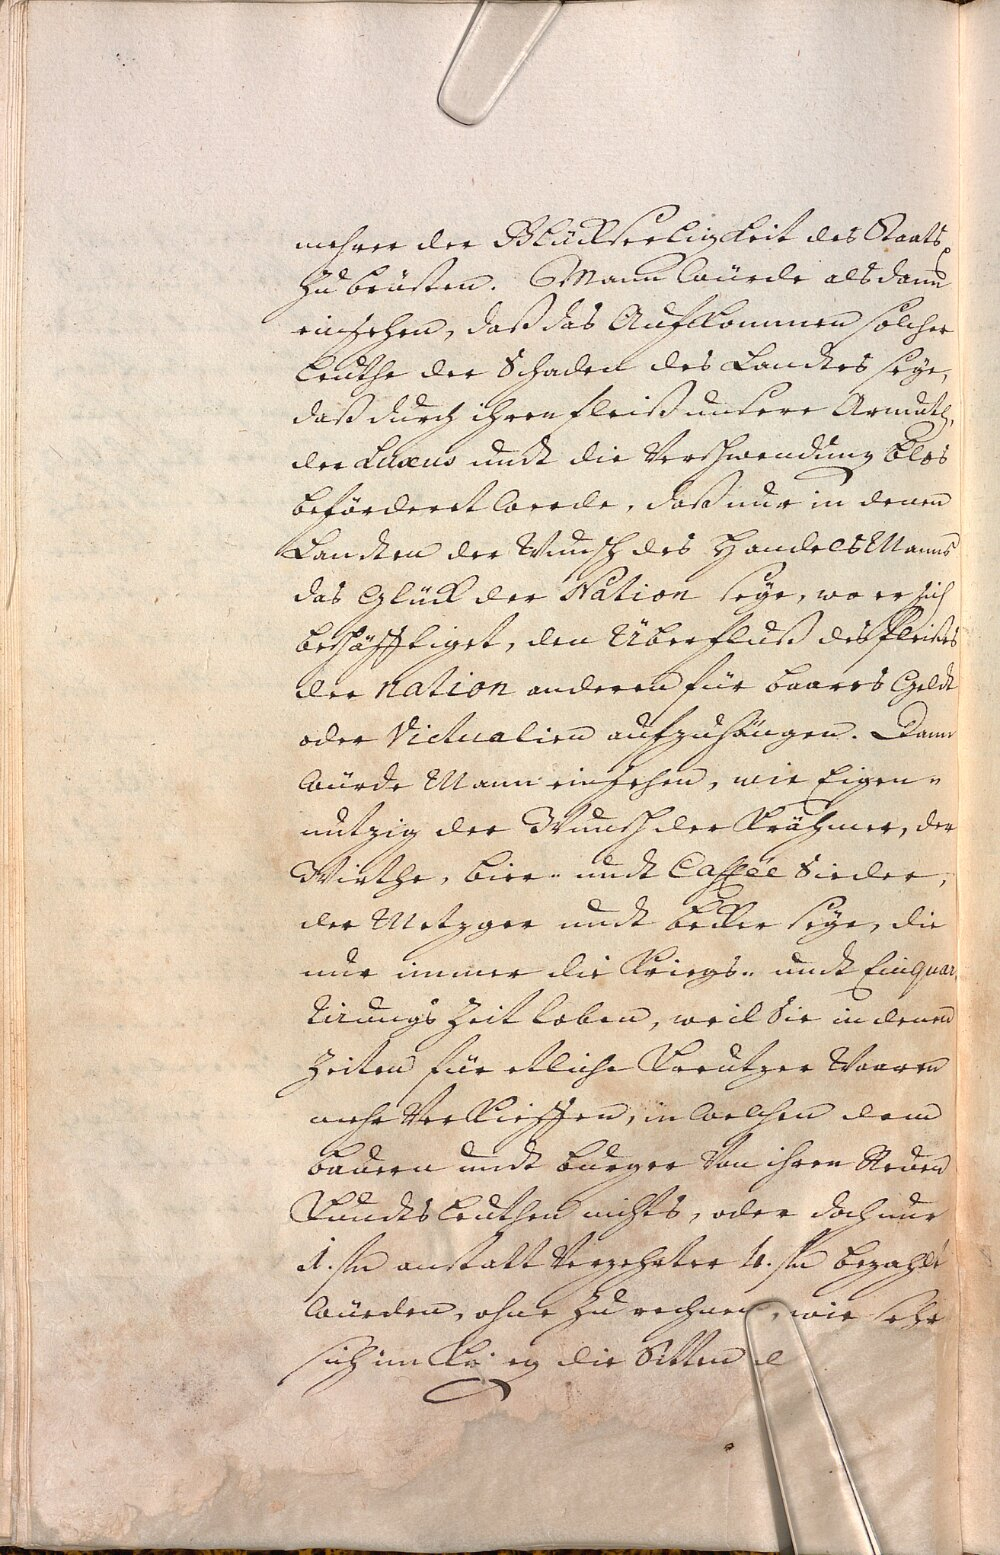 mehrer der Glückseeligkeit des Staats
zu brüsten. Mann würde alsdann
einsehen, daß das Aufkommen solcher
Leuthe der Schaden des Landtes seye,
daß durch ihren fleiß unsere Armuth,
der Luxus undt die Verschwendung blos
beförderet werde, daß nur in denen
Landten der Wunsch des Handels Manns
das Glück der Nation seye, wo er sich
beschäfftiget, den Überfluß des fleißes
der nation anderen für baares Geldt
oder Victualien aufzuhängen. Dann
würde Mann einsehen, wie Eigen-
nutzig der Wunsch der Krähmer, der
Wirthe, bier- undt Caffée Sieder,
der Metzger undt becker seye, die
nur immer die Kriegs- undt Einquar-
tirungs Zeit loben, weil Sie in denen
Zeiten für etliche Kreutzer Waaren
mehr Verkieffen, in welchen dem
bauern undt burger Von ihren Neuen
Kundts Leuthen nichts, oder doch nur
1. fl. anstatt Verzehrter 4. fl. bezahlt
würden, ohne zu rechnen, wie sehr
sich im Krieg die Sitten